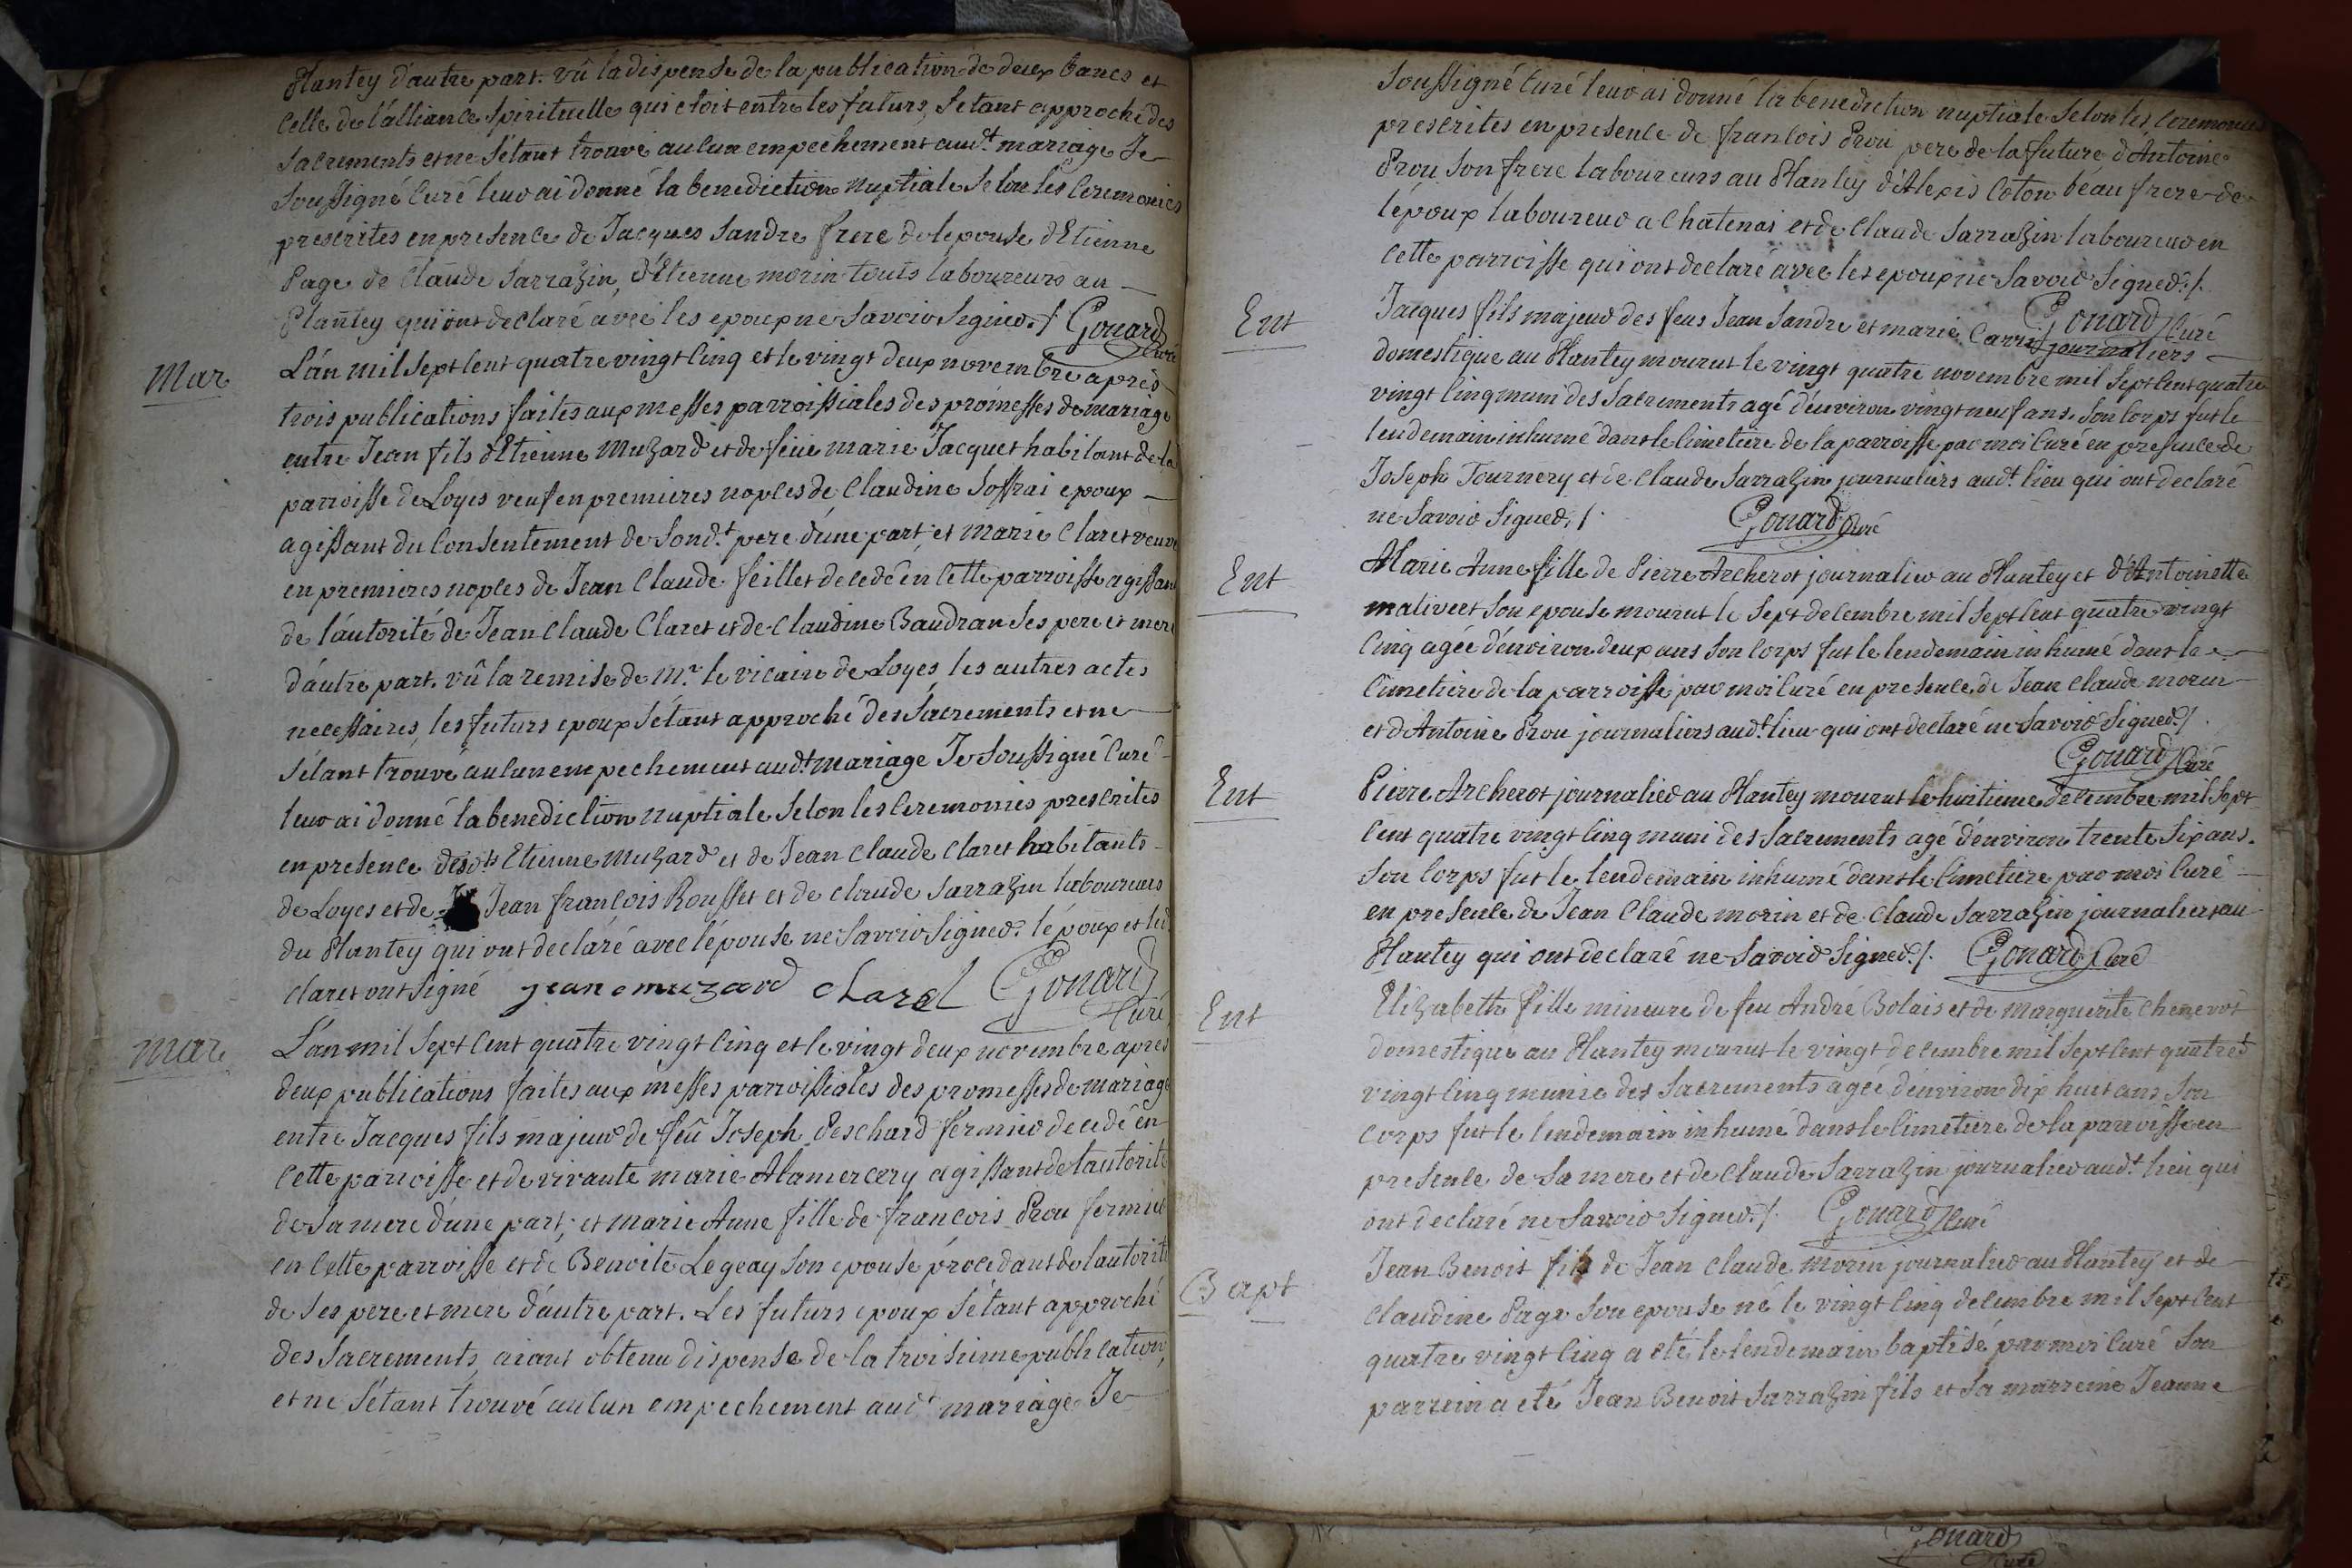 Plantey d'autre part. vû la dispense de la publication de deux bancs et
celle de l'alliance spirituelle qui etoit entre les futurs, s'etant approché des
sacrements et ne s'étant trouvé aucun empechement aud.t mariage Je
soussigné curé leur ai donné la benediction nuptiale selon les ceremonies
prescrites en presence de Jacques Sandre frere de l'epouse d'Etienne
Page de Claude Sarrazin, d'Etienne morin touts laboureurs au
Plantey qui ont declaré avec les epoux ne savoir signer./. Gonard
curé
Mar
L'an mil sept cent quatre vingt cinq et le vingt deux novembre après
trois publications faites aux messes parroissiales des promesses de mariage
entre Jean fils d'Etienne Muzard et de feüe marie Jacquet habitant de la
parroisse de Loyes veuf en premieres noples de Claudine Soffrai epoux
agissant du consentement de sond.t pere d'une part; et Marie Claret veuve
en premieres noples de Jean Claude feillet decedé en cette parroisse agissant
de l'autorité de Jean Claude Claret et de Claudine Baudran ses pere et mere
d'autre part. vû la remise de M.r le vicaire de Loyes, les autres actes
necessaires, les futurs epoux s'étant approché des sacrements et ne
s'étant trouvé aucun empechement aud.t mariage Je soussigné curé
leur ai donné la benediction nuptiale selon les ceremonies prescrites
en presence desd.ts Etienne Muzard et de Jean Claude Claret habitants
de Loyes et de Jean françois Rousset et de claude Sarrazin laboureurs
du Plantey qui ont declaré avec l'épouse ne savoir signer. l'époux et led
claret ont signé jean muzard claret Gonard
Curé
mar
L'an mil sept cent quatre vingt cinq et le vingt deux novembre apres
deux publications faites aux messes parroissiales des promesses de mariage
entre Jacques fils majeur de feû Joseph Peschard fermier decedé en
cette parroisse et de vivante marie Alamercery agissant de l'autorité
de sa mere d'une part; et marie Anne fille de françois Prou fermier
en cette parroisse et de Benoite Legeay son epouse procedant de l'autorité
de ses pere et mere d'autre part. Les futurs epoux s'étant approché
des sacrements, aiant obtenu dispense de la troisieme publication,
et ne s'étant trouvé aucun empechement aud.t mariage Je
soussigné curé leur ai donné la benediction nuptiale selon les ceremonies
prescrites en presence de francois Prou pere de la future d'Antoine
Prou son frere laboureurs au Plantey d'Alexis Coton beau frere de
l'époux laboureur a Chatenai et de Claude Sarrazin laboureur en
cette parroisse qui ont declaré avec les epoux ne savoir signer./.
Gonard Curé
Ent
Jacques fils majeur des feus Jean Sandre et marie journaliers
domestique au Plantey mourut le vingt quatre novembre mil sept cent quatre
vingt cinq muni des sacrements agé d'environ vingt neuf ans. Son corps fut le
lendemain inhumé dans le cimetiere de la parroisse par moi curé en presence de
Joseph Tournery et de Claude Sarrazin journaliers aud.t lieu qui ont declaré
ne savoir signer./. Gonard Curé
Ent
Marie Anne fille de Pierre Archerot journalier au Plantey et d'Antoinette
malivert son epouse mourut le sept decembre mil sept cent quatre vingt
cinq agée d'environ deux ans son corps fut le lendemain inhumé dans le
cimetiere de la parroisse par moi curé en presence de Jean Claude morin
et d'Antoine Prou journaliers aud.t lieu qui ont declaré ne savoir signer./.
Gonard Curé
Ent
Pierre Archerot journalier au Plantey mourut le huitieme decembre mil sept
cent quatre vingt cinq muni des sacrements agé d'environ trente six ans.
son corps fut le lendemain inhumé dans le cimetiere par moi curé
en presence de Jean Claude morin et de Claude Sarrazin journaliers au
Plantey qui ont declaré ne savoir signer./. Gonard Curé
Ent
Elizabeth fille mineure de feu André Bolais et de Marguerite Chenevot
domestique au Plantey mourut le vingt decembre mil sept cent quatre
vingt cinq munie des sacrements agée d'environ dix huit ans son
corps fut le lendemain inhumé dans le cimetiere de la parroisse en
presence de sa mere et de Claude Sarrazin journalier aud.t lieu qui
ont declaré ne savoir signer./. Gonard Curé
Bapt
Jean Benoit fils de Jean Claude morin journalier au Plantey et de
Claudine Page son epouse né le vingt cinq decembre mil sept cent
quatre vingt cinq a eté le lendemain baptisé par moi curé son
parrein a eté Jean Benoit Sarrazin fils et sa marreine Jeanne
Gonard
Curé